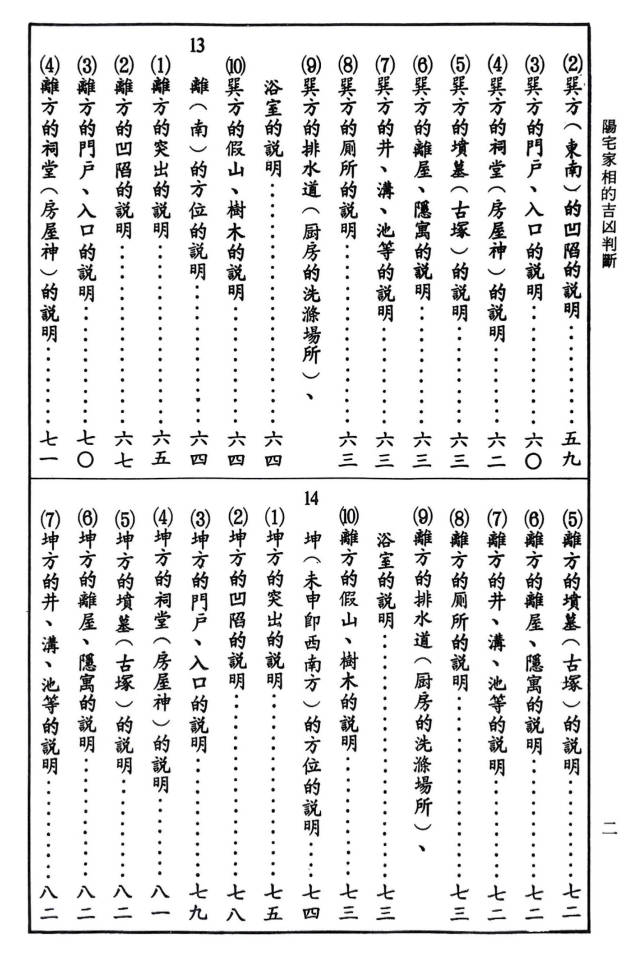 陽宅家相的吉凶判斷
(2)巽方(東南)的凹陷的説明………五九
(3)巽方的門戸、入口的説明………六〇
(4)巽方的祠堂(房屋神)的説明………六二
(5)巽方的墳墓(古塚)的説明………六三
(6)巽方的離屋、隱寓的説明………六三
(7)巽方的井、溝、池等的説明………六三
(8)巽方的厠所的説明………六三
(9)巽方的排水道(厨房的洗滌場所)、
浴室的説明………六四
(10)巽方的假山、樹木的説明………六四
13 離(南)的方位的説明………六四
(1)離方的突出的説明………六五
(2)離方的凹陷的説明………六七
(3)離方的門戸、入口的説明………七〇
(4)離方的祠堂(房屋神)的説明………七一
(5)離方的墳墓(古塚)的説明………七二
(6)離方的離屋、隱寓的説明………七二
(7)離方的井、溝、池等的説明………七二
(8)離方的厠所的説明………七三
(9)離方的排水道(厨房的洗滌場所)、
浴室的説明………七三
(10)離方的假山、樹木的説明………七三
14 坤(未申卽西南方)的方位的説明………七四
(1)坤方的突出的説明………七五
(2)坤方的凹陷的説明………七八
(3)坤方的門戸、入口的説明………七九
(4)坤方的祠堂(房屋神)的説明………八一
(5)坤方的墳墓(古塚)的説明………八二
(6)坤方的離屋、隱寓的説明………八二
(7)坤方的井、溝、池等的説明………八二
二